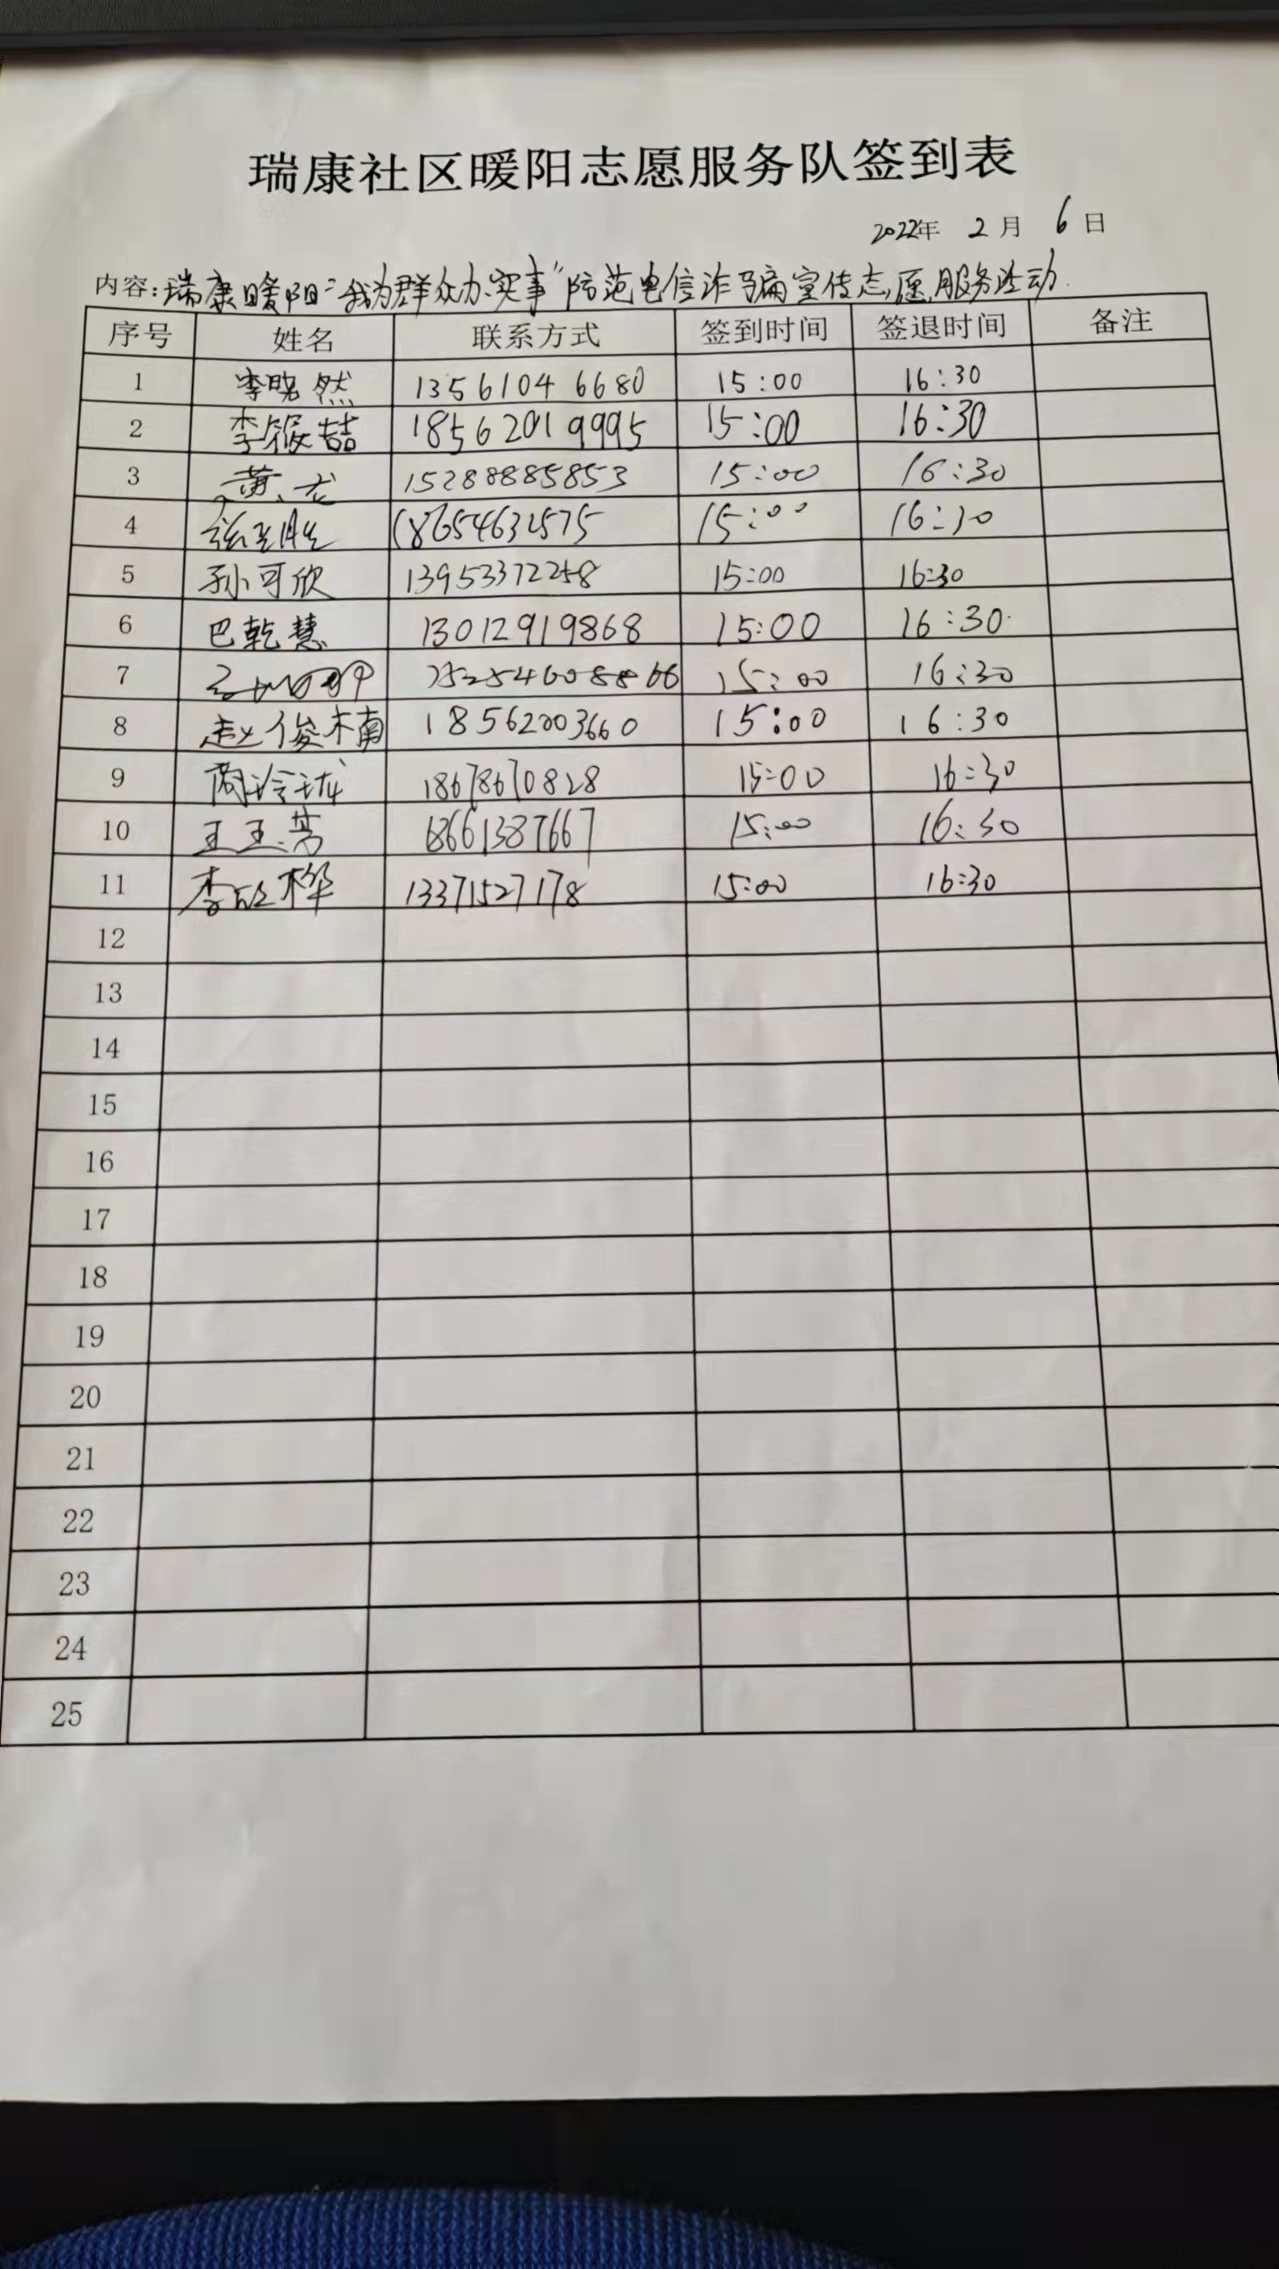 瑞康社区暖阳志愿服务队签到表
2022年 2月 6日
内容:瑞康暖阳"我为群众办实事"防范电信诈骗宣传志愿服务活动.
序号 姓名 联系方式 签到时间 签退时间 备注
1 李晓然 13561046680 15:00 16:30
2 李 喆 18562019995 15:00 16:30
3 黄龙 15288885853 15:00 16:30
4 张 胜 15:00 16:30
5 孙可欣 13953372258 15:00 16:30
6 巴乾慧 13012919868 15:00 16:30
7 15:00 16:30
8 赵俊楠 18562003660 15:00 16:30
9 周 18678670828 15:00 16:30
10 王玉芳 18661387667 15:00 16:30
11 李欣桦 13371527178 15:00 16:30
12
13
14
15
16
17
18
19
20
21
22
23
24
25